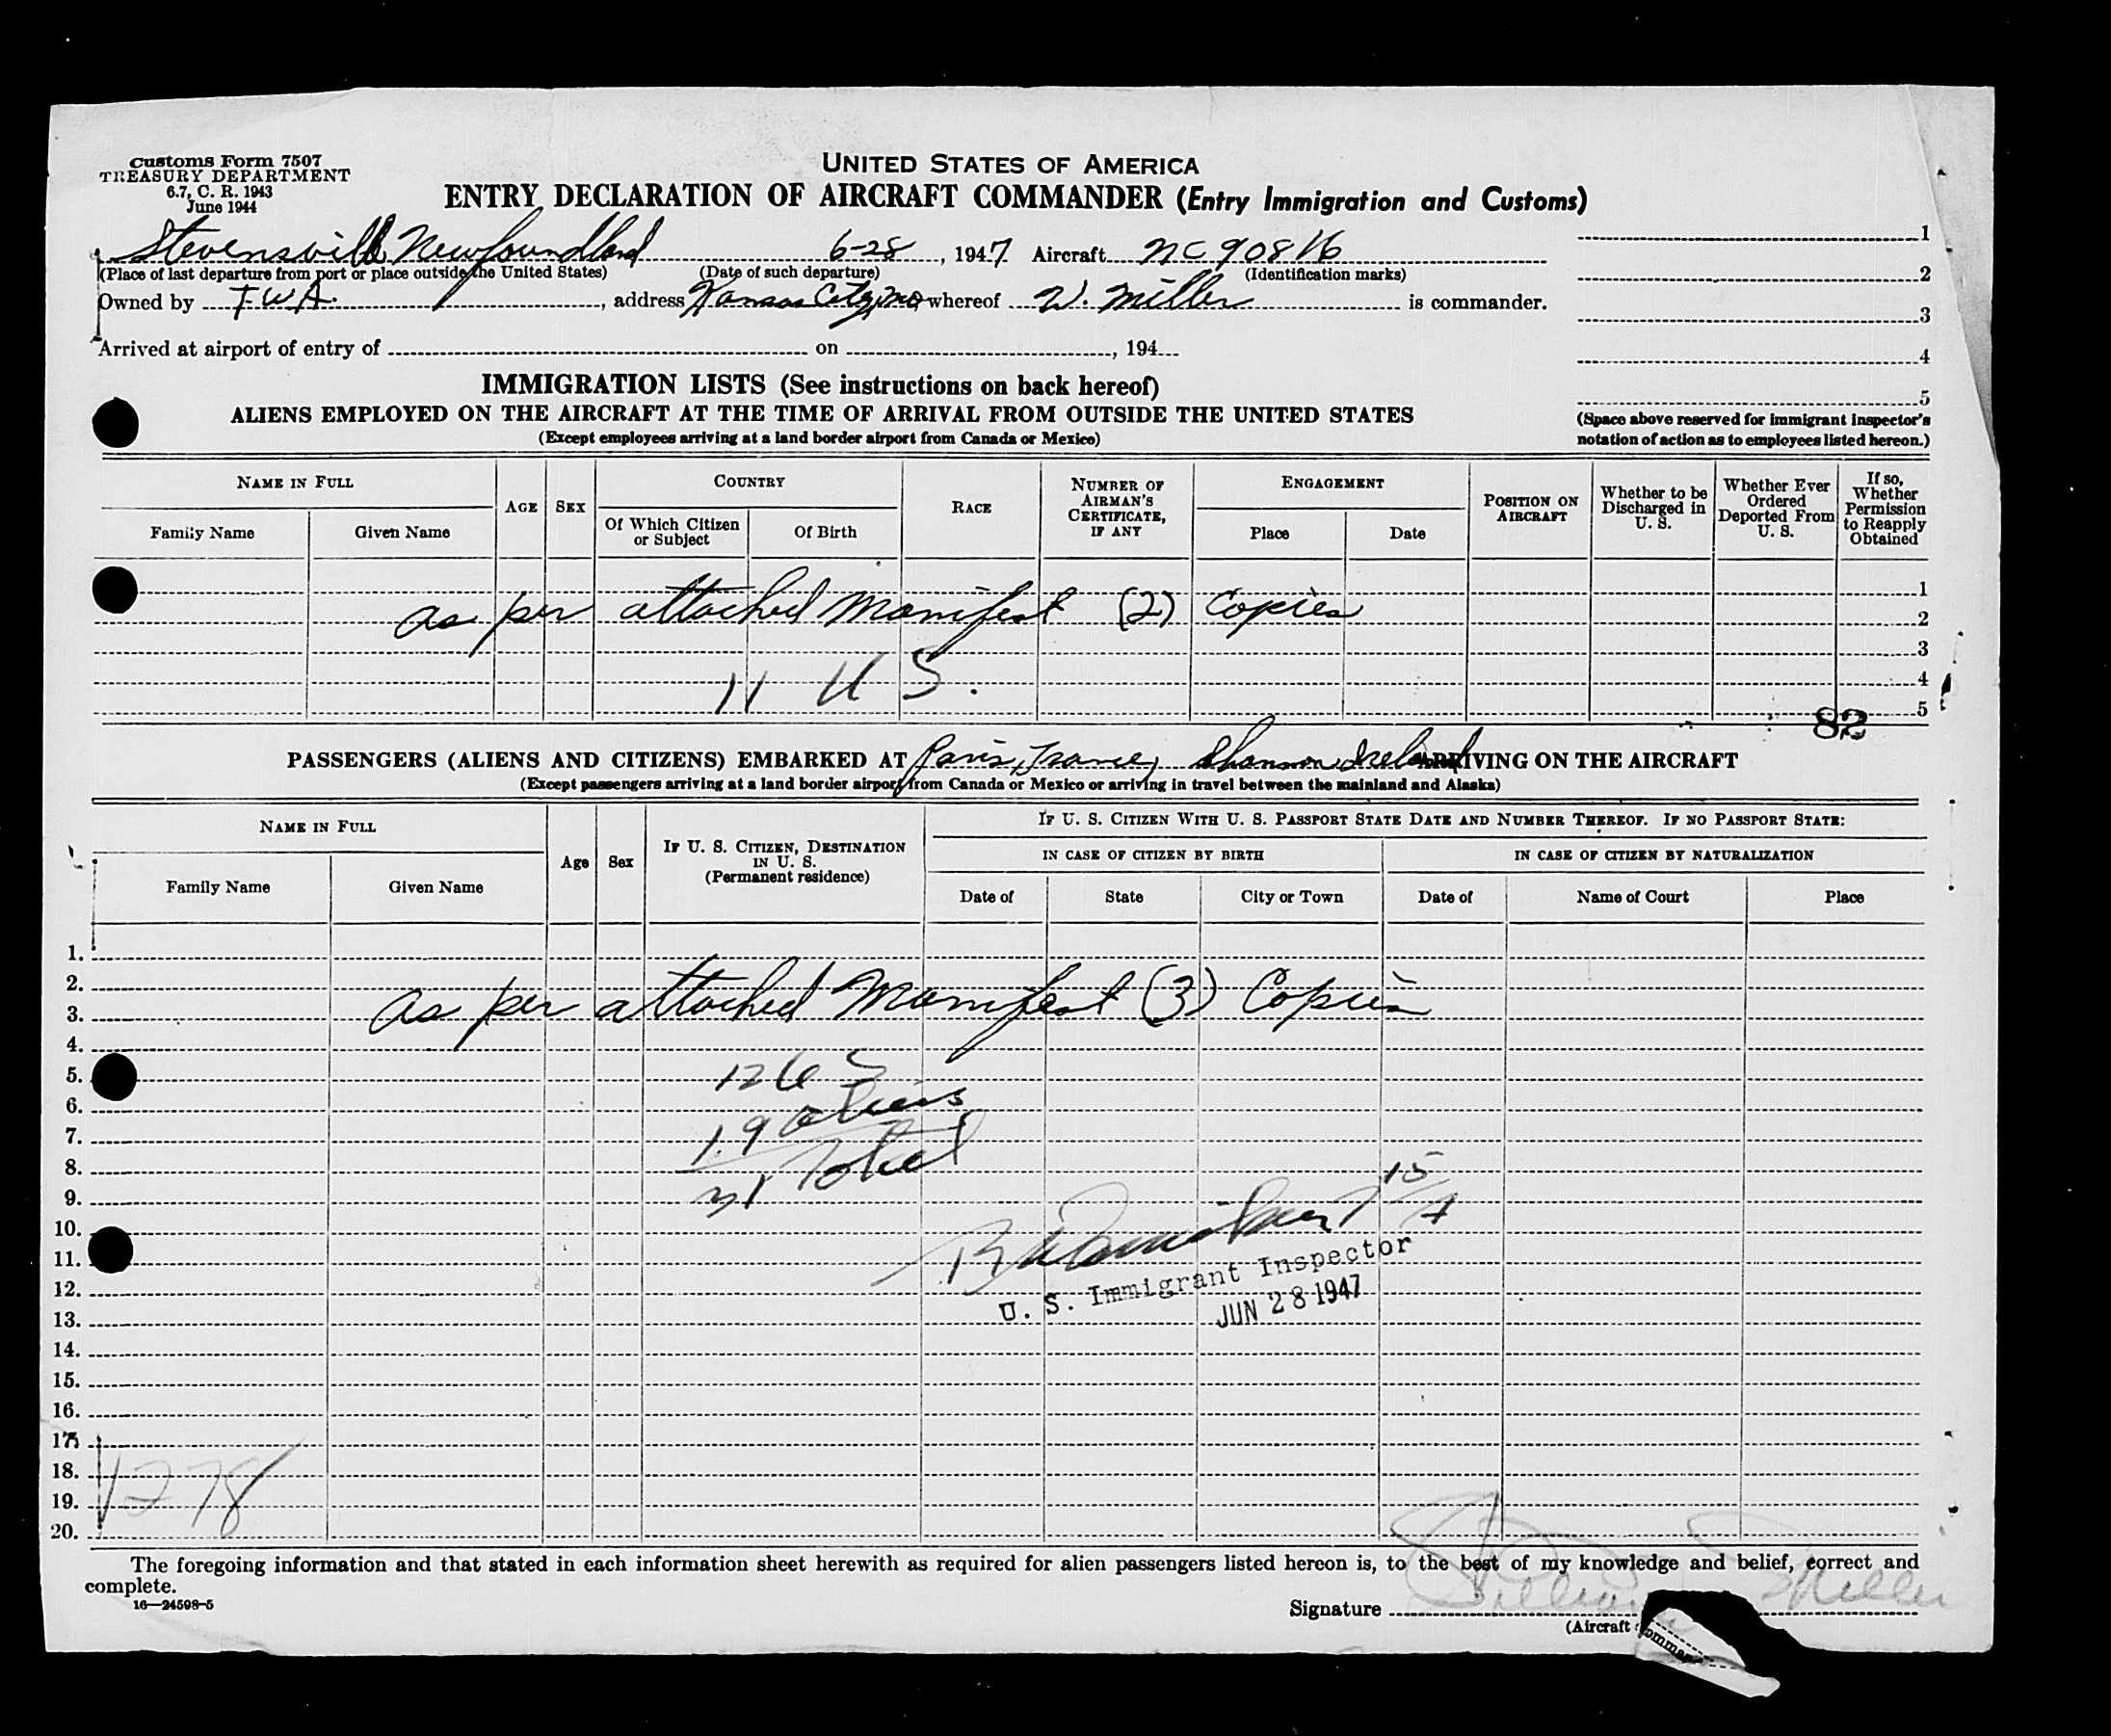 Customs Form 7507
TREASURY DEPARTMENT
6.7, C. R. 1943
June 1944
UNITED STATES OF AMERICA
ENTRY DECLARATION OF AIRCRAFT COMMANDER (Entry Immigration and Customs)
Stevensville Newfoundland 6-28, 1947 Aircraft NC 90816
(Place of last departure from port or place outside the United States) (Date of such departure) (Identification marks)
Owned by T.W.A., address Kansas City, Mo whereof W. Miller is commander.
Arrived at airport of entry of on , 194
1
2
3
4
5
(Space above reserved for immigrant inspector's
notation of action as to employees listed hereon.)
IMMIGRATION LISTS (See instructions on back hereof)
ALIENS EMPLOYED ON THE AIRCRAFT AT THE TIME OF ARRIVAL FROM OUTSIDE THE UNITED STATES
(Except employees arriving at a land border airport from Canada or Mexico)
NAME IN FULL
Family Name
Given Name
AGE
SEX
COUNTRY
Of Which Citizen
or Subject
Of Birth
RACE
NUMBER OF
AIRMAN'S
CERTIFICATE,
IF ANY
ENGAGEMENT
Place
Date
POSITION ON
AIRCRAFT
Whether to be
Discharged in
U. S.
Whether Ever
Ordered
Deported From
U. S.
If so,
Whether
Permission
to Reapply
Obtained
1
as per attached manifest (2) Copies
2
3
11 U S.
4
5
82
PASSENGERS (ALIENS AND CITIZENS) EMBARKED AT Paris, France, Shannon Ireland ARRIVING ON THE AIRCRAFT
(Except passengers arriving at a land border airport from Canada or Mexico or arriving in travel between the mainland and Alaska)
NAME IN FULL
Family Name
Given Name
Age
Sex
IF U. S. CITIZEN, DESTINATION
IN U. S.
(Permanent residence)
IF U. S. CITIZEN WITH U. S. PASSPORT STATE DATE AND NUMBER THEREOF. IF NO PASSPORT STATE:
IN CASE OF CITIZEN BY BIRTH
IN CASE OF CITIZEN BY NATURALIZATION
Date of
State
City or Town
Date of
Name of Court
Place
1.
2.
as per attached Manifest (3) Copies
3.
4.
5. 12 U S
6. 19 aliens
7.
8. 31 Total
9.
10.
11.
U. S. Immigrant Inspector
12.
JUN 28 1947
13.
14.
15.
16.
17.
18.
1278
19.
20.
The foregoing information and that stated in each information sheet herewith as required for alien passengers listed hereon is, to the best of my knowledge and belief, correct and
complete.
16—24598-5
Signature William Miller
(Aircraft comman